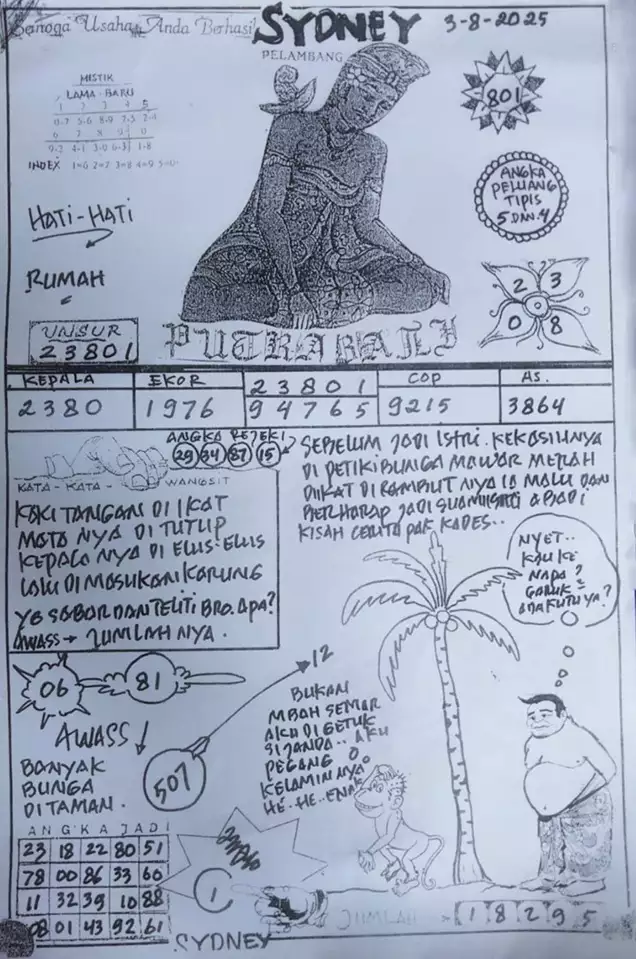 Semoga Usaha Anda Berhasil
SYDNEY
3-8-2025
PELAMBANG
MISTIK
LAMA - BARU
1 2 3 4 5
0-7 5-6 8-9 7-3 2-4
6 7 8 9 0
9-2 4-1 3-0 6-3 1-8
INDEX 1=6 2=7 3=8 4=9 5=0
801
ANGKA
PELUANG
TIPIS
5 DAN 4
HATI-HATI
RUMAH
2 3
0 8
UNSUR
23801
PUTRA BALI
KEPALA
EKOR
23801
COP
AS.
2380
1976
94765
9215
3864
ANGKA REJEKI
29 34 87 15
KATA - KATA - WANGSIT
KAKI TANGAN DI IKAT
MATA NYA DI TUTUP
KEPALA NYA DI ELUS-ELUS
LALU DI MASUKAN KARUNG
YG SABAR DAN TELITI BRO. APA?
AWASS → JUMLAH NYA.
SEBELUM JADI ISTRI. KEKASIHNYA
DI PETIKI BUNGA MAWAR MERAH
DIIKAT DI RAMBUT NYA IA MALU DAN
BERHARAP JADI SUAMI ISTRI ABADI
KISAH CERITA PAK KADES..
NYET..
KAU KE
NAPA?
GARUK =
ADA KUTU YA?
06
81
12
AWASS
BANYAK
BUNGA
DITAMAN.
507
BUKAN
MBAH SEMAR
AKU DI GETUK
SI JANDA.. AKU
PEGANG
KELAMIN NYA
HE. HE.. ENAK
ANGKA JADI
23 18 22 80 51
78 00 86 33 60
11 32 39 10 88
08 01 43 92 61
1
JUMLAH
1 8 2 9 5
SYDNEY